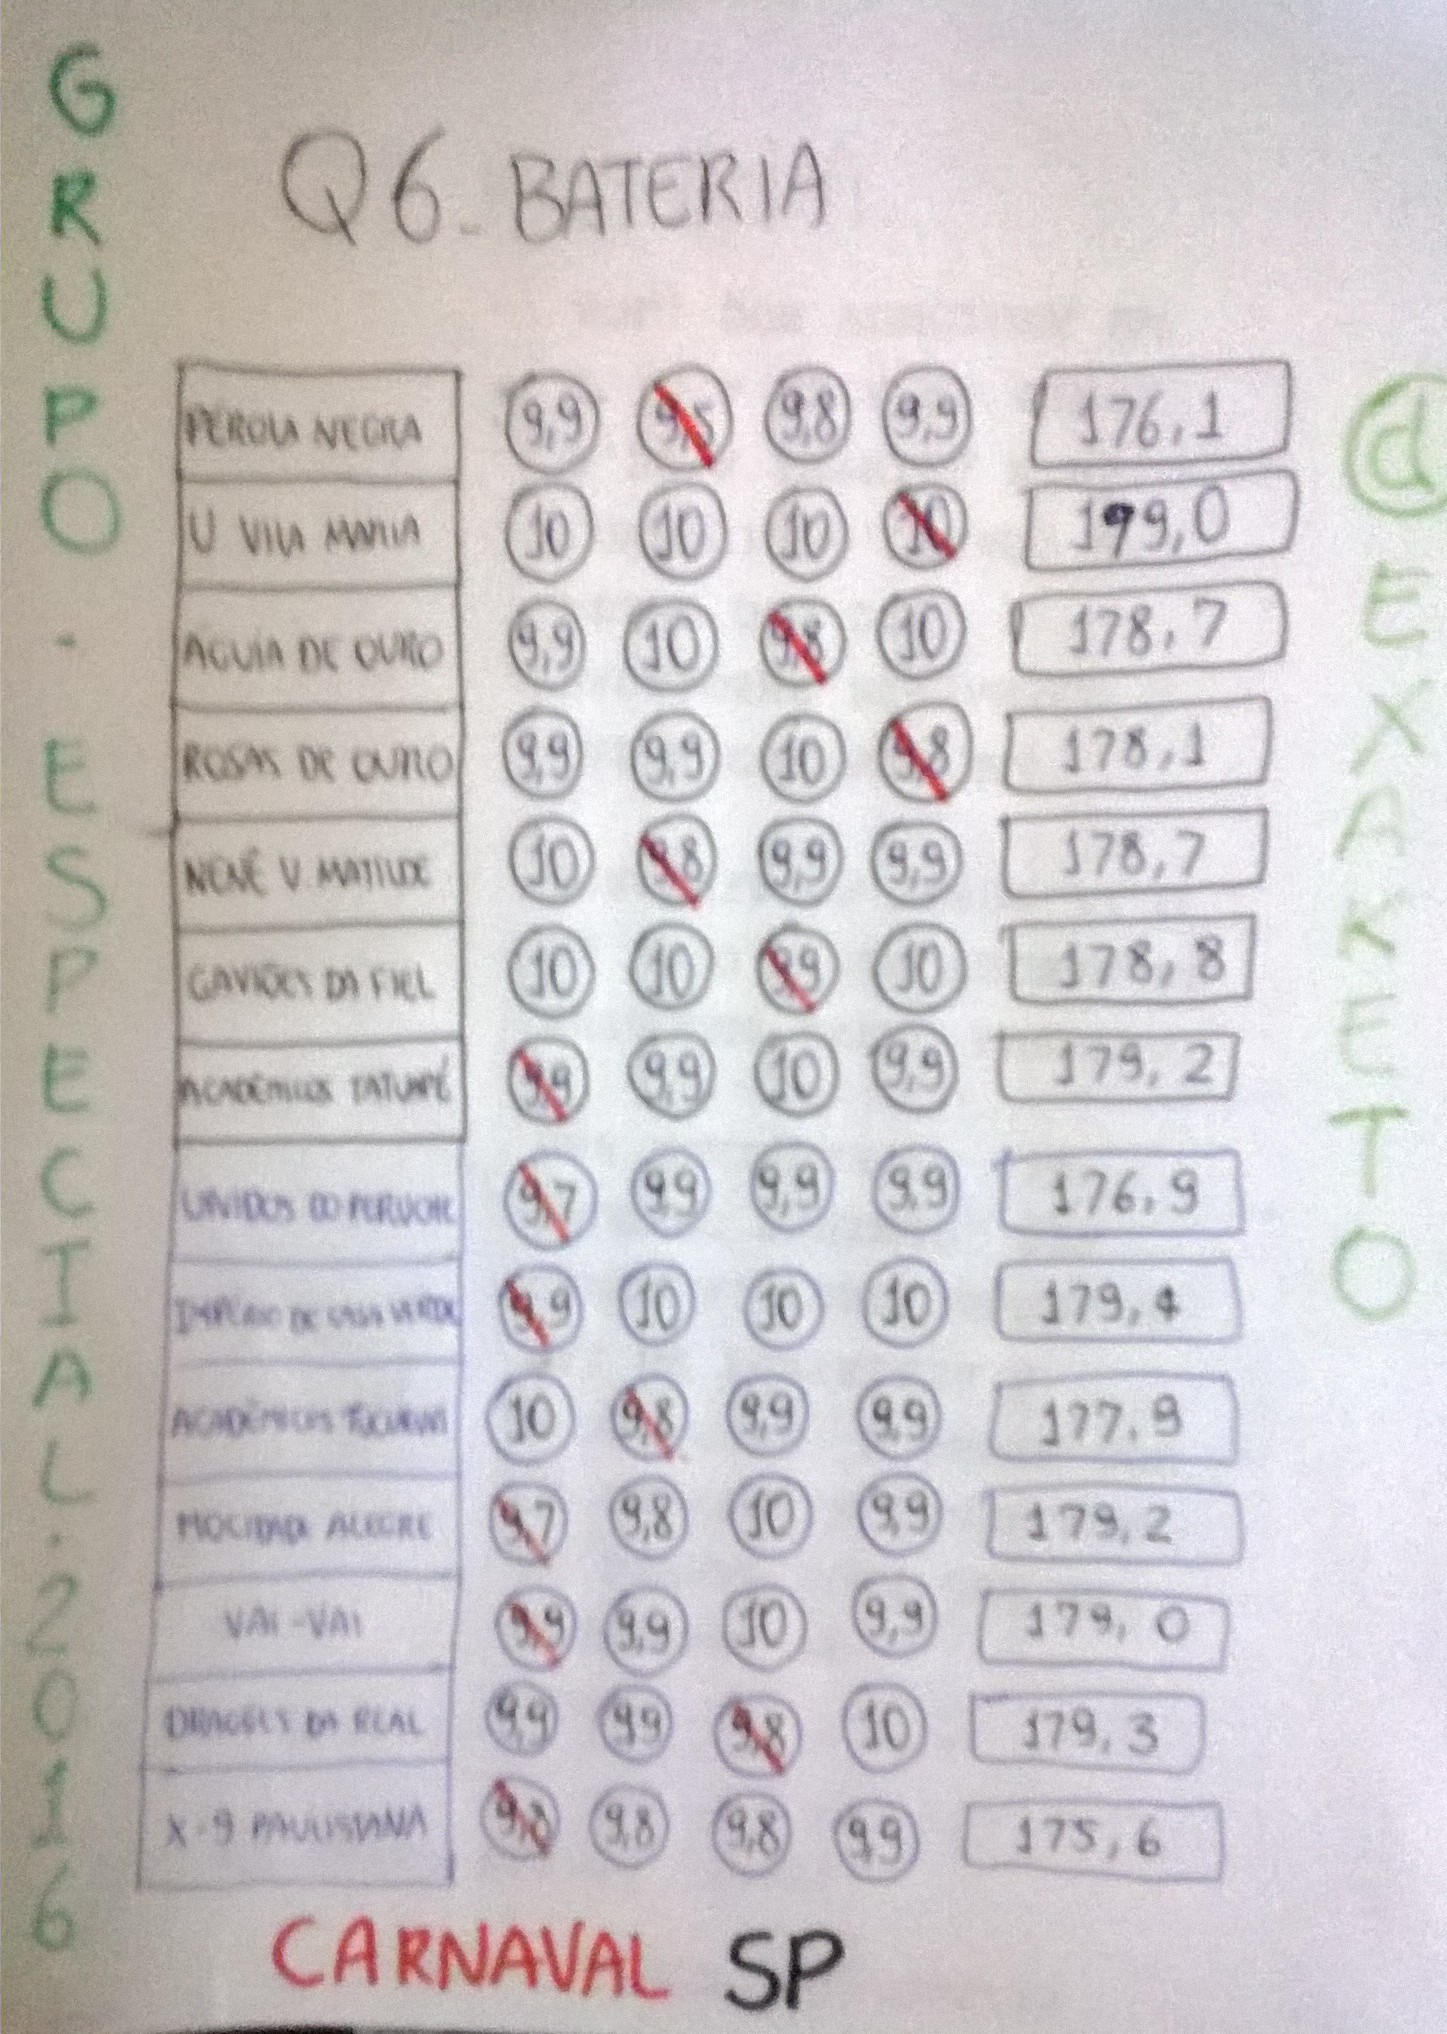 GRUPO - ESPECIAL - 2016
Q6 - BATERIA
PÉROLA NEGRA 9,9 9,5 9,8 9,9 176,1
U VILA MARIA 10 10 10 10 199,0
ÁGUIA DE OURO 9,9 10 9,8 10 178,7
ROSAS DE OURO 9,9 9,9 10 9,8 178,1
NENÊ V. MATILDE 10 9,8 9,9 9,9 178,7
GAVIÕES DA FIEL 10 10 9,9 10 178,8
ACADÊMICOS TATUAPÉ 9,9 9,9 10 9,9 179,2
UNIDOS DO PERUCHE 9,7 9,9 9,9 9,9 176,9
IMPÉRIO DE CASA VERDE 9,9 10 10 10 179,4
ACADÊMICOS TUCURUVI 10 9,8 9,9 9,9 177,9
MOCIDADE ALEGRE 9,7 9,8 10 9,9 179,2
VAI-VAI 9,9 9,9 10 9,9 179,0
DRAGÕES DA REAL 9,9 9,9 9,8 10 179,3
X-9 PAULISTANA 9,8 9,8 9,9 175,6
CARNAVAL SP
@EXAKETO